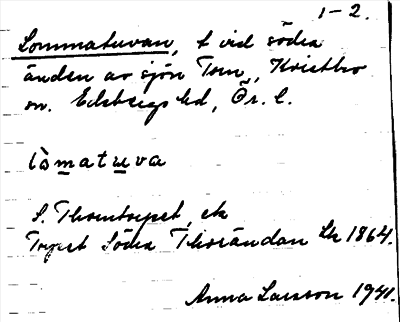 1-2.
Lommatuvan, t vid södra
änden av sjön Tom, Kristbro
sn. Edsbergs hd, Ör. l.
làmatuva
S. Thomtorpet, ek
Torpet Södra Thorändan Lk 1864.
Anna Larsson 1941.